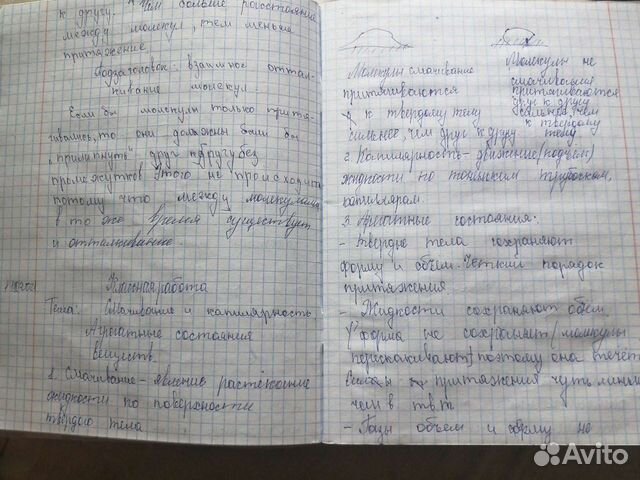 к другу. Чем больше расстояние
между молекул, тем меньше
притяжение
Подзаголовок: взаимное оттал-
кивание молекул.
Если бы молекулы только притя-
гивались, то они должны были бы
"прилипнуть" друг к другу без
промежутков этого не происходит
потому что между молекулами
в то же время существует
и отталкивание.
Классная работа
Тема: Смачивание и капилярность
Агрегатные состояния
веществ.
1. Смачивание - явление растекание
жидкости по поверхности
твёрдого тела
Молекулы смачивание
притягиваются
к твердому телу
сильнее, чем друг к другу
Молекулы не
смачивания
притягиваются
друг к другу
сильнее, чем
к твердому
телу
2. Капилярность - движение (подъём)
жидкости по тоненьким трубочкам,
капиллярам.
3. Агрегатные состояния:
- твердые тела сохраняют
форму и объем. Четкий порядок
притяжения
- Жидкости сохраняют объем.
форма не сохраняет (молекулы
перескакивают) поэтому она течёт
притяжения чуть
чем в тв.т
- Газы объем и форму не
Avito